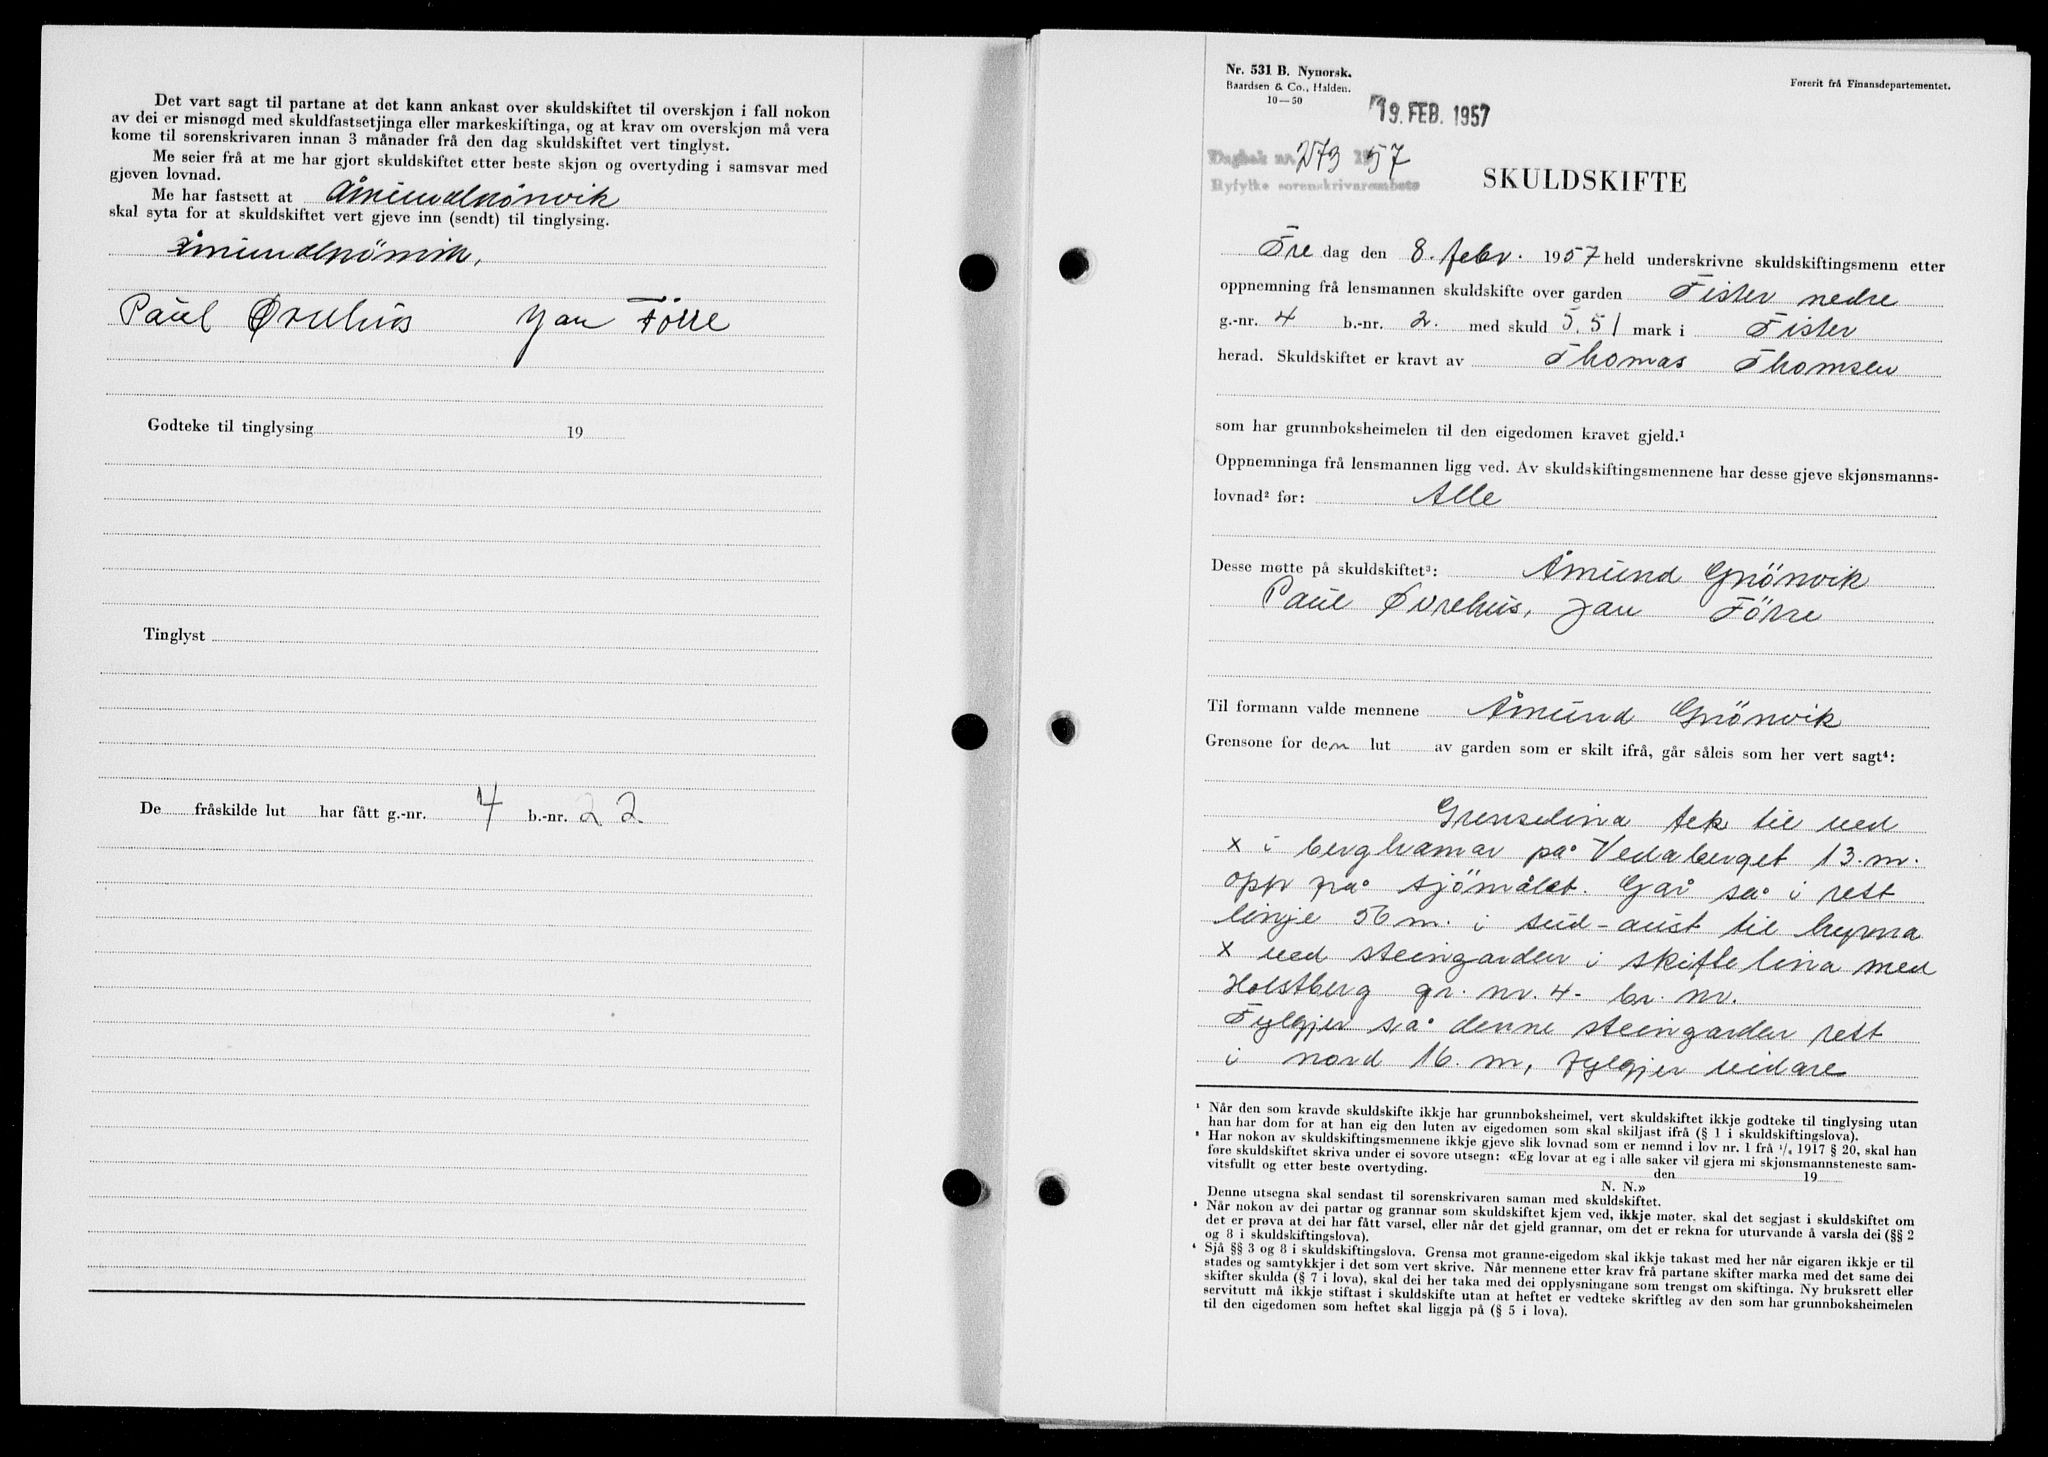 Det vart sagt til partane at det kann ankast over skuldskiftet til overskjøn i fall nokon
av dei er misnøgd med skuldfastsetjinga eller markeskiftinga, og at krav om overskjøn må vera
kome til sorenskrivaren innan 3 månader frå den dag skuldskiftet vert tinglyst.
Me seier frå at me har gjort skuldskiftet etter beste skjøn og overtyding i samsvar med
gjeven lovnad.
Me har fastsett at Åmund Grönvik
skal syta for at skuldskiftet vert gjeve inn (sendt) til tinglysing.
Åmund Grönvik,
Paul Øvrehus Jan Förre
Godteke til tinglysing 19
Tinglyst
De fråskilde lut har fått g.-nr. 4 b.-nr. 22
Nr. 531 B. Nynorsk.
Baardsen & Co., Halden.
10—50
Førerit frå Finansdepartementet.
19. FEB. 1957
Dagbok nr. 273 1957
Ryfylke sorenskrivarembete
SKULDSKIFTE
Fre dag den 8. febr. 1957 held underskrivne skuldskiftingsmenn etter
oppnemning frå lensmannen skuldskifte over garden Fister nedre
g.-nr. 4 b.-nr. 2. med skuld 5.51 mark i Fister
herad. Skuldskiftet er kravt av Thomas Thomsen
som har grunnboksheimelen til den eigedomen kravet gjeld.¹
Oppnemninga frå lensmannen ligg ved. Av skuldskiftingsmennene har desse gjeve skjønsmanns-
lovnad² før: Alle
Desse møtte på skuldskiftet³: Åmund Grönvik
Paul Øvrehus, Jan Förre
Til formann valde mennene Åmund Grönvik
Grensone for den lut av garden som er skilt ifrå, går såleis som her vert sagt⁴:
Grenselina tek til ved
x i berghamar på Vedaberget 13.m.
opp frå sjömålet. Går så i rett
linje 56 m. i sud-aust til hyrna
x ved steingarden i skiftelina med
Holstberg gr. nr. 4- br. nr.
Fylgjer så denne steingarden rett
i nord 16.m, fylgjer vidare
¹ Når den som kravde skuldskifte ikkje har grunnboksheimel, vert skuldskiftet ikkje godteke til tinglysing utan
han har dom for at han eig den luten av eigedomen som skal skiljast ifrå (§ 1 i skuldskiftingslova).
² Har nokon av skuldskiftingsmennene ikkje gjeve slik lovnad som er nemnd i lov nr. 1 frå 1/6 1917 § 20, skal han
føre skuldskiftet skriva under ei sovore utsegn: «Eg lovar at eg i alle saker vil gjera mi skjønsmannsteneste sam-
vitsfullt og etter beste overtyding. den 19
N. N.»
Denne utsegna skal sendast til sorenskrivaren saman med skuldskiftet.
³ Når nokon av dei partar og grannar som skuldskiftet kjem ved, ikkje møter. skal det segjast i skuldskiftet om
det er prøva at dei har fått varsel, eller når det gjeld grannar, om det er rekna for uturvande å varsla dei (§§ 2
og 8 i skuldskiftingslova).
⁴ Sjå §§ 3 og 8 i skuldskiftingslova. Grensa mot granne-eigedom skal ikkje takast med her når eigaren ikkje er til
stades og samtykkjer i det som vert skrive. Når mennene etter krav frå partane skifter marka med det same dei
skifter skulda (§ 7 i lova), skal dei her taka med dei opplysningane som trengst om skiftinga. Ny bruksrett eller
servitutt må ikkje stiftast i skuldskifte utan at heftet er vedteke skriftleg av den som har grunnboksheimelen
til den eigedomen som heftet skal liggja på (§ 5 i lova).